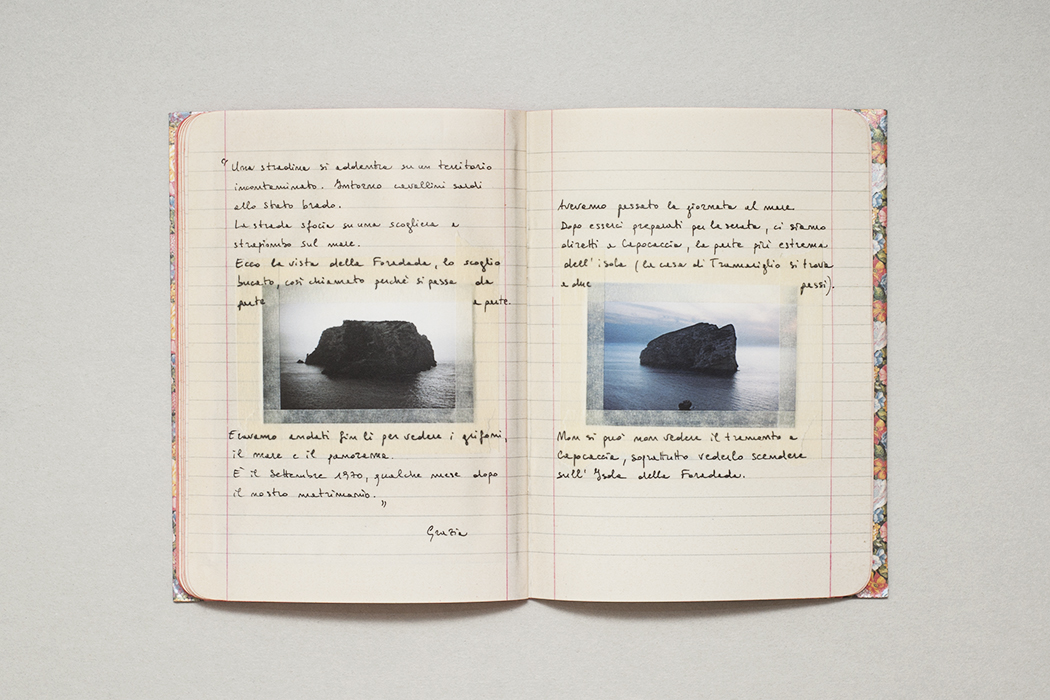 "Una stradina si addentra su un territorio
incontaminato. Intorno cavallini sardi
allo stato brado.
La strada sfocia su una scogliera a
strapiombo sul mare.
Ecco la vista della Foradada, lo scoglio
bucato, così chiamato perché si passa da
parte a parte.
Eravamo andati fin lì per vedere i grifoni,
il mare e il panorama.
È il Settembre 1970, qualche mese dopo
il nostro matrimonio."
Grazia
Avevamo passato la giornata al mare.
Dopo esserci preparati per la serata, ci siamo
diretti a Capocaccia, la parte più estrema
dell'isola (la casa di Tramariglio si trova
a due passi).
Non si può non vedere il tramonto a
Capocaccia, soprattutto vederlo scendere
sull'Isola della Foradada.